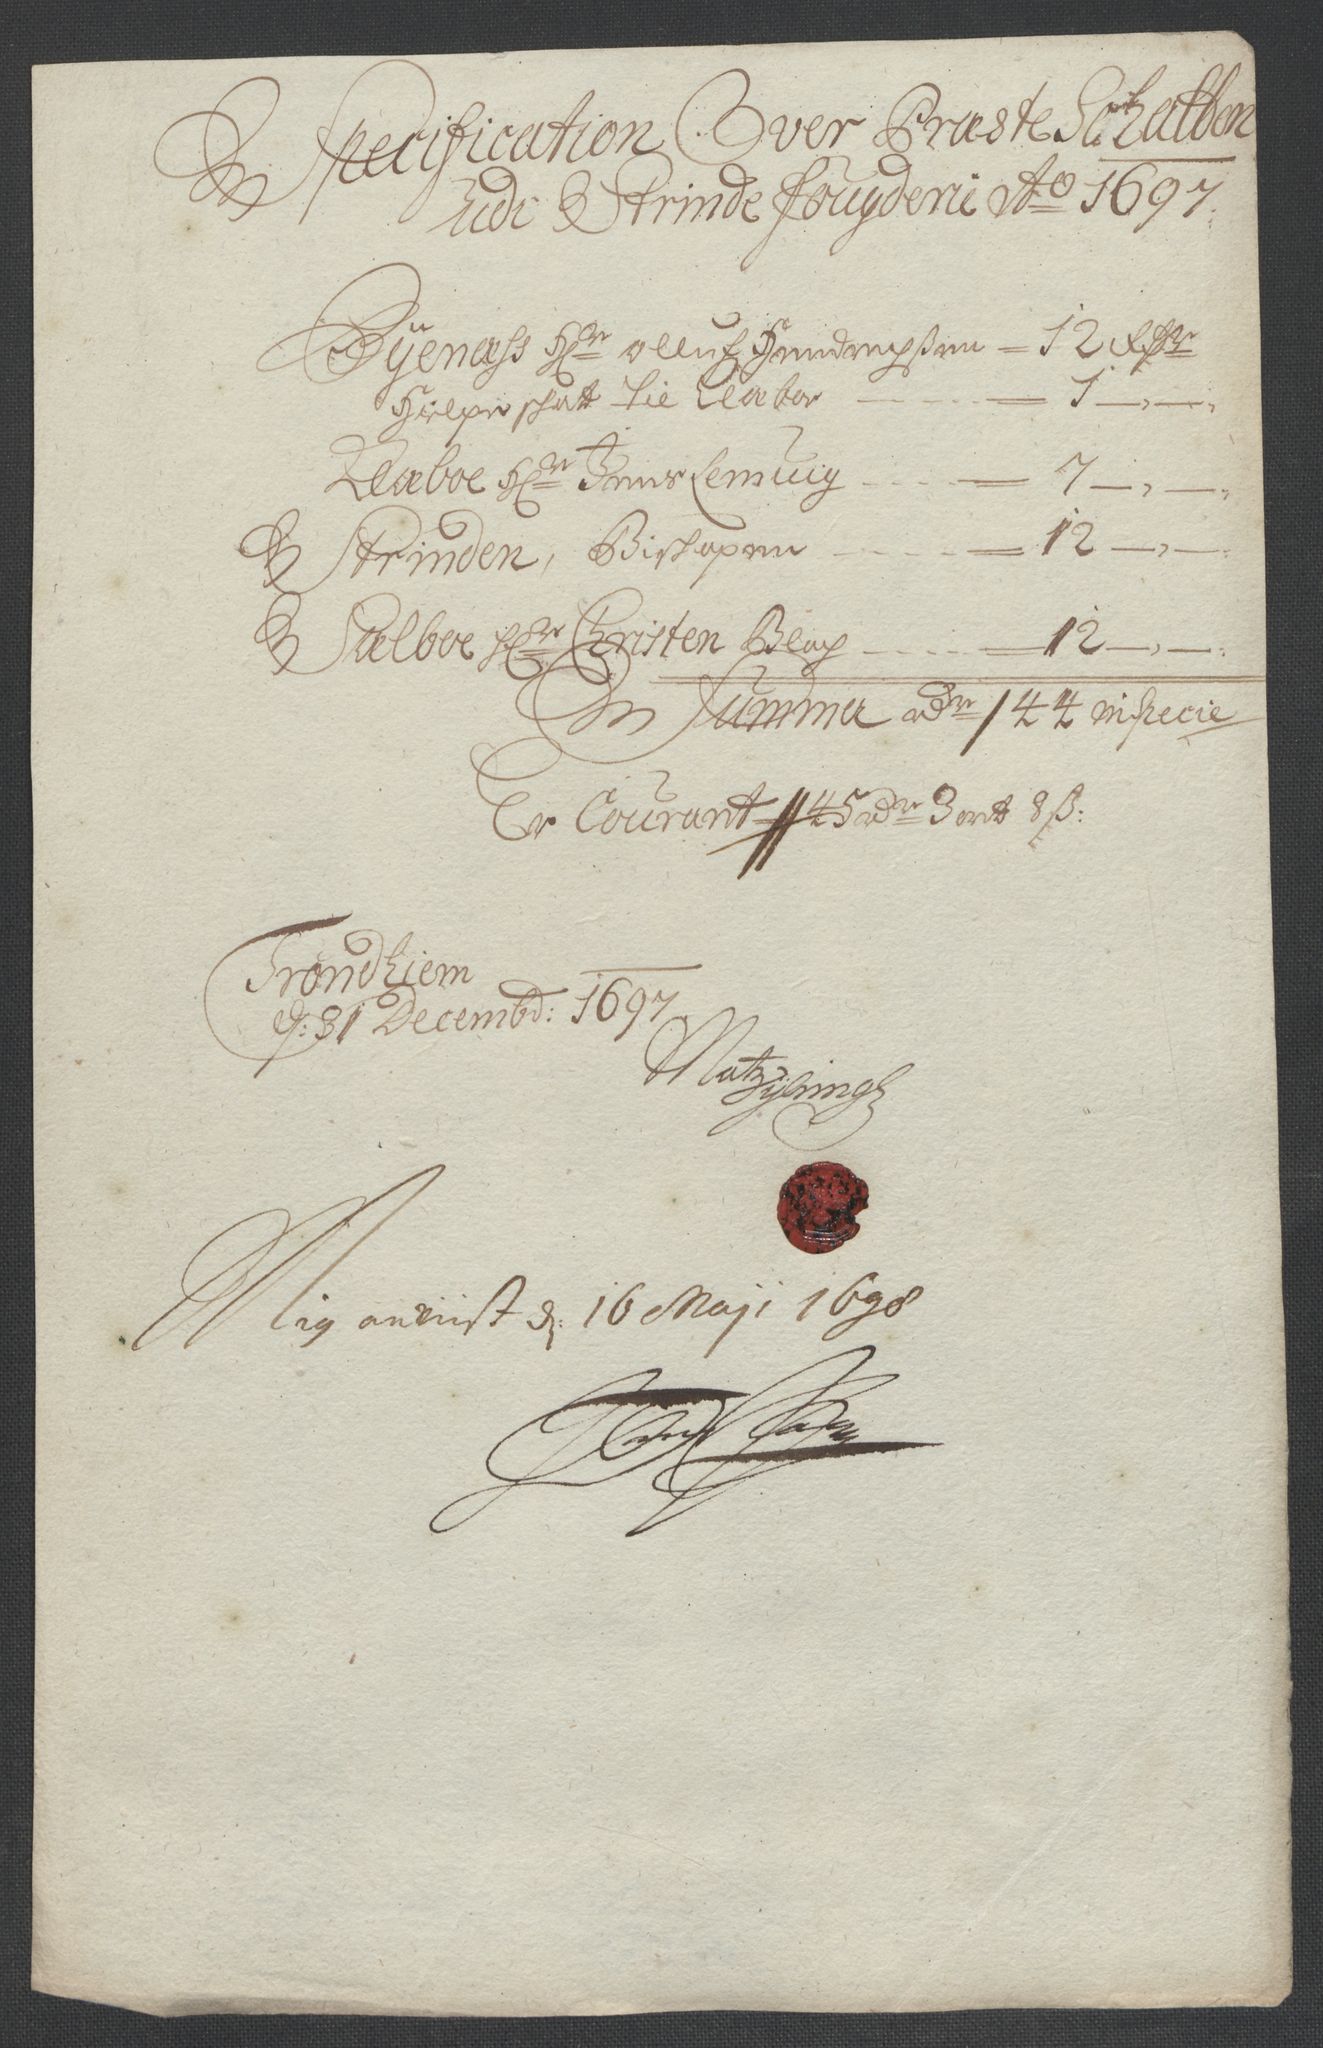 Specification Over Præste Schatten
udi Strinde fougderie Ao 1697.
Byenæss Hr olluf Hendrichssen = 12 Rdr
Hielpe skatt til Klæboe = 1 — " — "
Klæboe Hr Jens Lemvig = 7 — " — "
Strinden, Bischopen = 12 — " — "
Sælboe Hr Christen Blog = 12 — " — "
Summa rdr 44 in specie
Er Courant 45 rdr 3 ort 8 ß:
Trondhiem
d: 31 Decembr: 1697
Mig anviist d: 16 Maji 1698